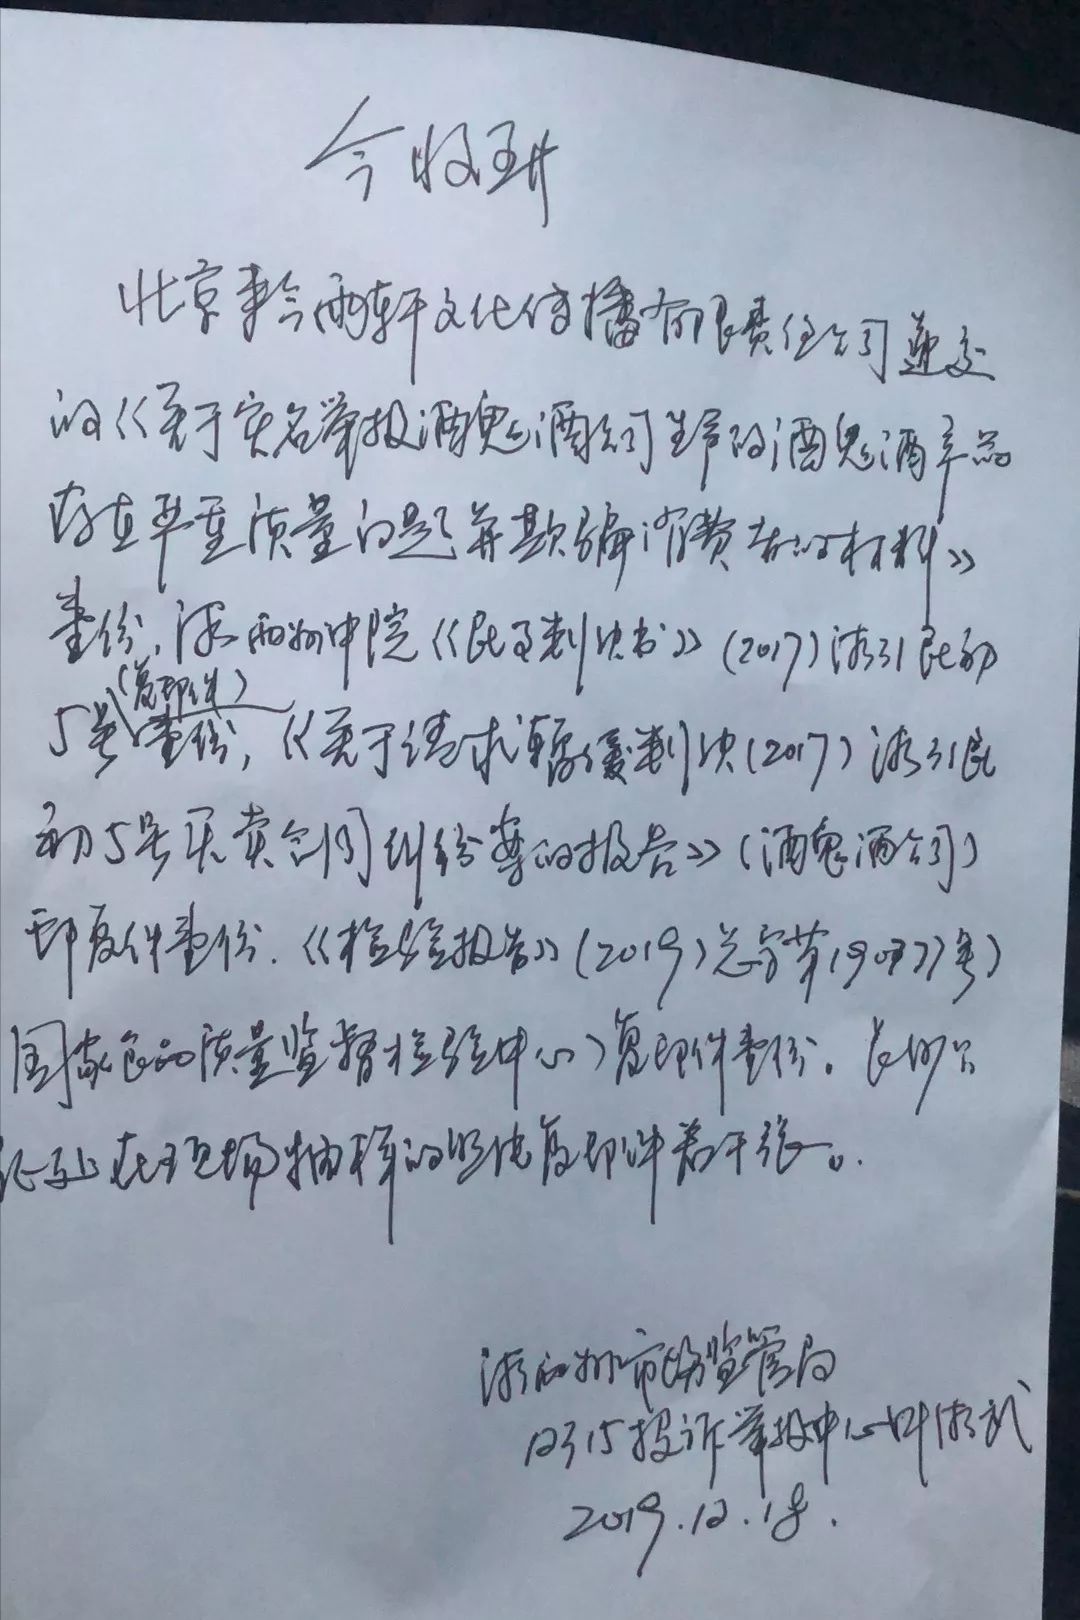 今收到
北京来今雨轩文化传播有限责任公司递交
的《关于实名举报酒鬼酒公司生产的酒鬼酒产品
存在严重质量问题并欺骗消费者的材料》
壹份,湘西州中院《民事判决书》(2017)湘31民初
(复印件)
5号壹份,《关于请求暂缓判决(2017)湘31民
初5号买卖合同纠纷案的报告》(酒鬼酒公司)
印复件壹份.《检验报告》(2019)总字第190877号)
国家食品质量监督检验中心)复印件壹份。长沙公
证处在现场抽样的照片复印件若干张。
湘西州市场监管局
12315投诉举报中心 湘武
2019.12.18.